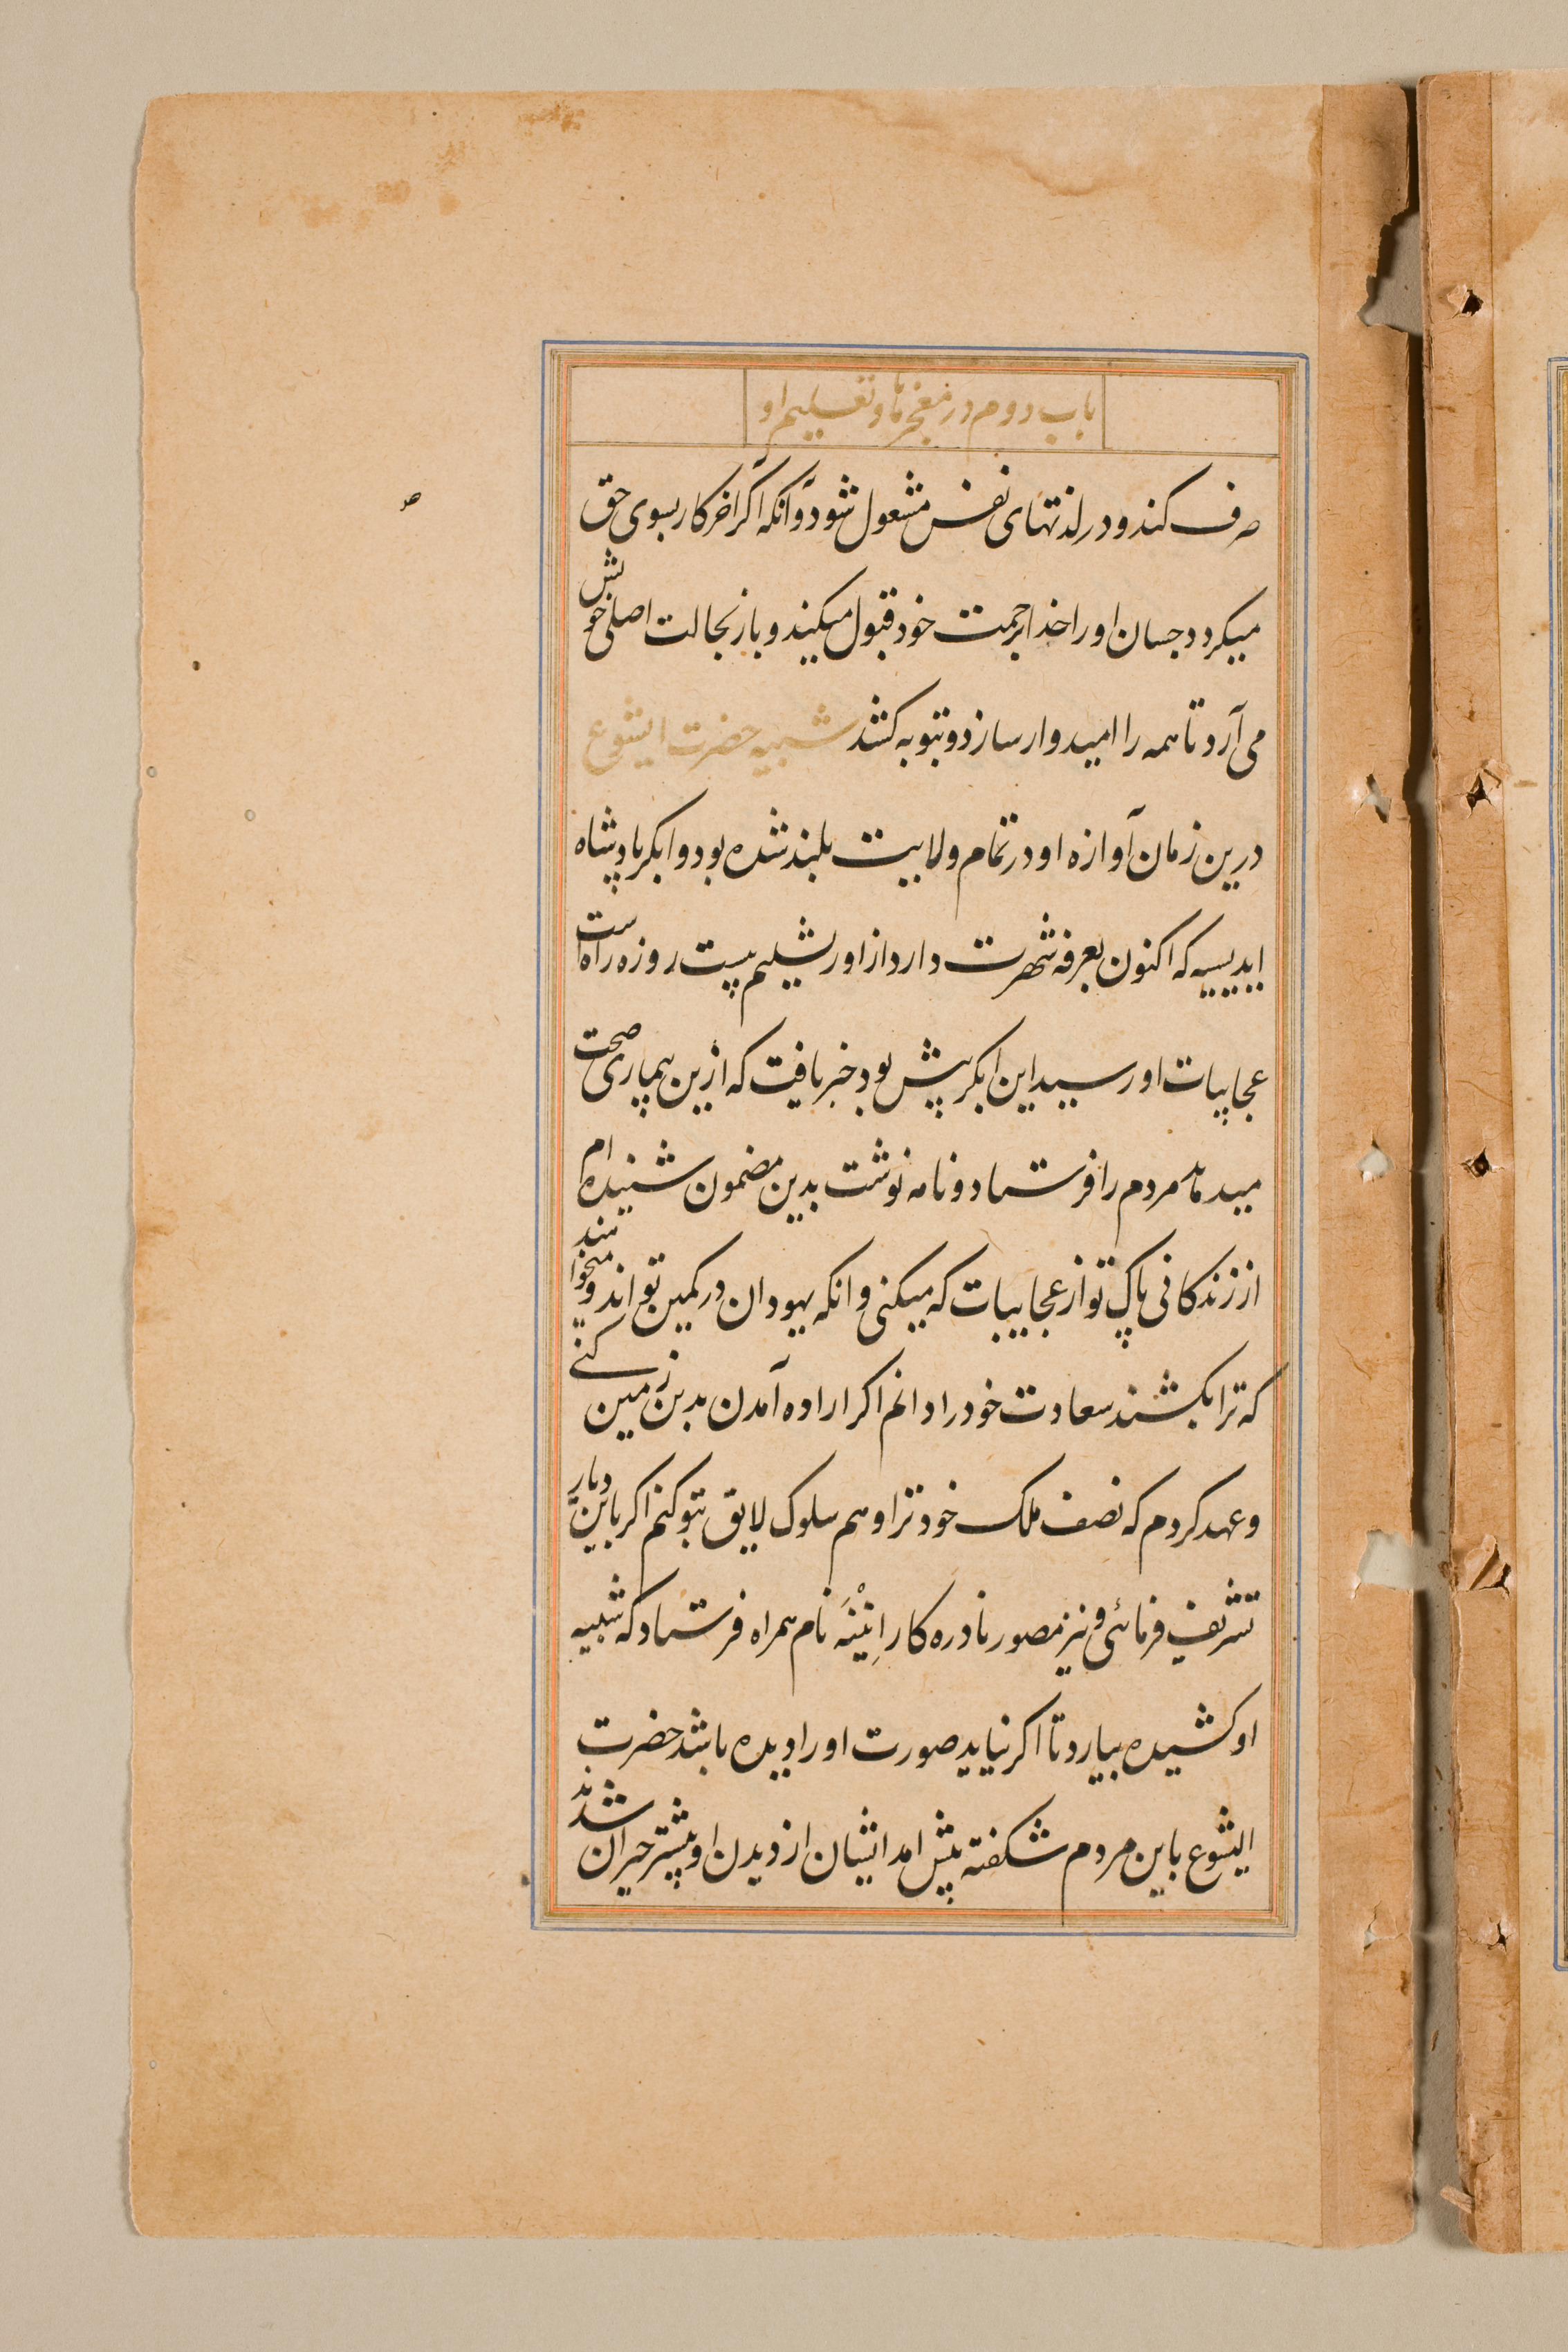 باب دوم در معجزها و تعلیم او
صرف کند و در لذتهای نفس مشعول شود و آنکه اکر آخر کار بسوی حق
میکردد جسان او را خدا برحمت خود قبول میکند و باز بحالت اصلی خویش
می آرد تا همه را امیدوار سازد و بتوبه کشد شبیه حضرت ایشوع
درین زمان آوازه او در تمام ولایت بلند شده بود و ابکر پادشاه
ایدیسیه که اکنون بعرفه شهرت دارد از اورشلیم بیست روزه راه است
عجایبات او رسید این ابکر پیش بود خبر یافت که ازین بیماری صحت
میدهد مردم را فرستاد و نامه نوشت بدین مضمون شنیده ام
از زندکانی پاک تو از عجایبات که میکنی و انکه یهودان در کمین تو اند و میخواهند
که ترا بکشند سعادت خود را دانم اکر اراده آمدن بدین زمین کنی
و عهد کردم که نصف ملک خود ترا دهم سلوک لایق بتو کنم اکر باین دیار
تشریف فرمائی و نیز مصور نادره کار اِنَیْنَه نام همراه فرستاد که شبیه
او کشیده بیارد تا اکر نیاید صورت او را دیده باشد حضرت
ایشوع باین مردم شکفته پیش امد ایشان از دیدن او بیشتر حیران شدند